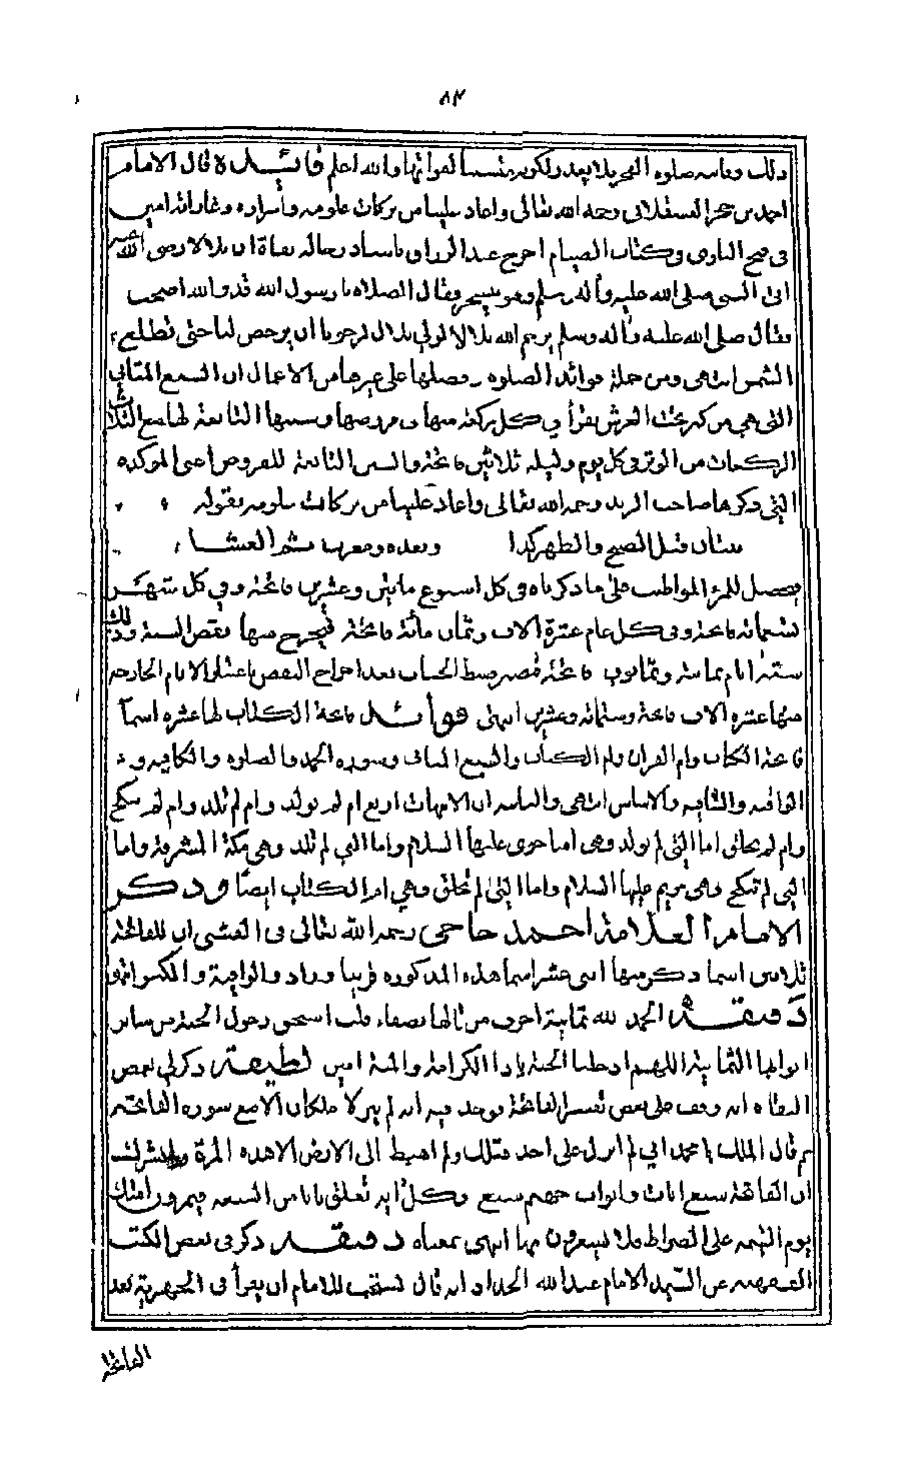 ٨٢
ذلك وفاته صلوة الفجر بلا بعد ولكونه متسببا لفواتها والله اعلم فائدة قال الامام
احمد بن حجر العسقلاني رحمه الله تعالى واعاد علينا من بركات علومه وأسراره امين
في فتح الباري في كتاب الصيام اخرج عبد الرزاق باسناد رجاله ثقاة ان بلالا رضي الله عنه
اتى النبي صلى الله عليه وآله وسلم وهو يتسحر وقال الصلاة يا رسول الله قد والله اصبحت
فقال صلى الله عليه وآله وسلم يرحم الله بلالا لولا بلال لرجونا ان يرخص لنا حتى تطلع
الشمس انتهى ومن جملة فوائد الصلوة وفضلها على غيرها من الاعمال ان السبع المثاني
التي هي من كنز تحت العرش يقرأ في كل ركعة منها من فروضها وسننها التابعة لها مع الثلاث
الركعات من الوتر في كل يوم وليلة ثلاثين فاتحة والسنن التابعة للفروض اعني الموكده
التي ذكرها صاحب الزبد رحمه الله تعالى واعاد علينا من بركات علومه بقوله
ثنتان قبل الصبح والظهر كذا وبعده ومغرب ثم العشا
فيحصل للمرء المواظب على ما ذكرناه في كل اسبوع مأتين وعشرين فاتحة وفي كل شهر
تسعمائة فاتحة وفي كل عام عشرة الاف وثمان مائة فاتحة فيخرج منها نقص السنة وذلك
ستة ايام بمائة وثمانون فاتحة فيصير ضبط الحساب بعد اخراج النقص باعتبار الايام الخارجه
منها عشره الاف فاتحة وستمائة وعشرين انتهى فوائد فاتحة الكتاب لها عشره اسما
فاتحة الكتاب وام القران وام الكتاب والسبع المثاني وسوره الحمد والصلوه والكافيه و
الواقيه والشافيه والاساس انتهى والناسه ان الامهات اربع ام لم تولد وام لم تلد وام لم تنكح
وام لم تخلق اما التي لم تولد فهي امنا حوى عليها السلام واما التي لم تلد وهي مكة المشرفة واما
التي لم تنكح وهي مريم عليها السلام واما التي لم تخلق وهي ام الكتاب ايضا وذكر
الامام العلامة احمد حاجي رحمه الله تعالى في الفشني ان للفاتحة
ثلاثين اسما ذكر منها اثنى عشر اسما هذه المذكوره قريبا وزاد والواجبة والكنز انتهى
دقيقة الحمد لله ثمانية احرف من قالها بصفاء قلب استحق دخول الجنة من سائر
ابوابها الثمانية اللهم ادخلنا الجنة يا ذا الكرامة والمنة امين لطيفة ذكر لي بعض
الثقاه انه وقف على بعض تفسير الفاتحة فوجد فيه انه لم ينزلا ملكان الا مع سوره الفاتحة
ثم قال الملك يا محمد اني لم انزل على احد قبلك ولم اهبط الى الارض الا هذه المرة وابشرك
ان الفاتحة سبع ايات وابواب جهنم سبع وكل ايه تغلق بابا من السبعه فيمرون امتك
يوم القيمه على الصراط فلا يشعرون بها انتهى بمعناه دقيقة ذكر في بعض الكتب
الفقهيه عن السيد الامام عبد الله الحداد انه قال يستحب للامام ان يقرأ في الجهرية بعد
الفاتحة